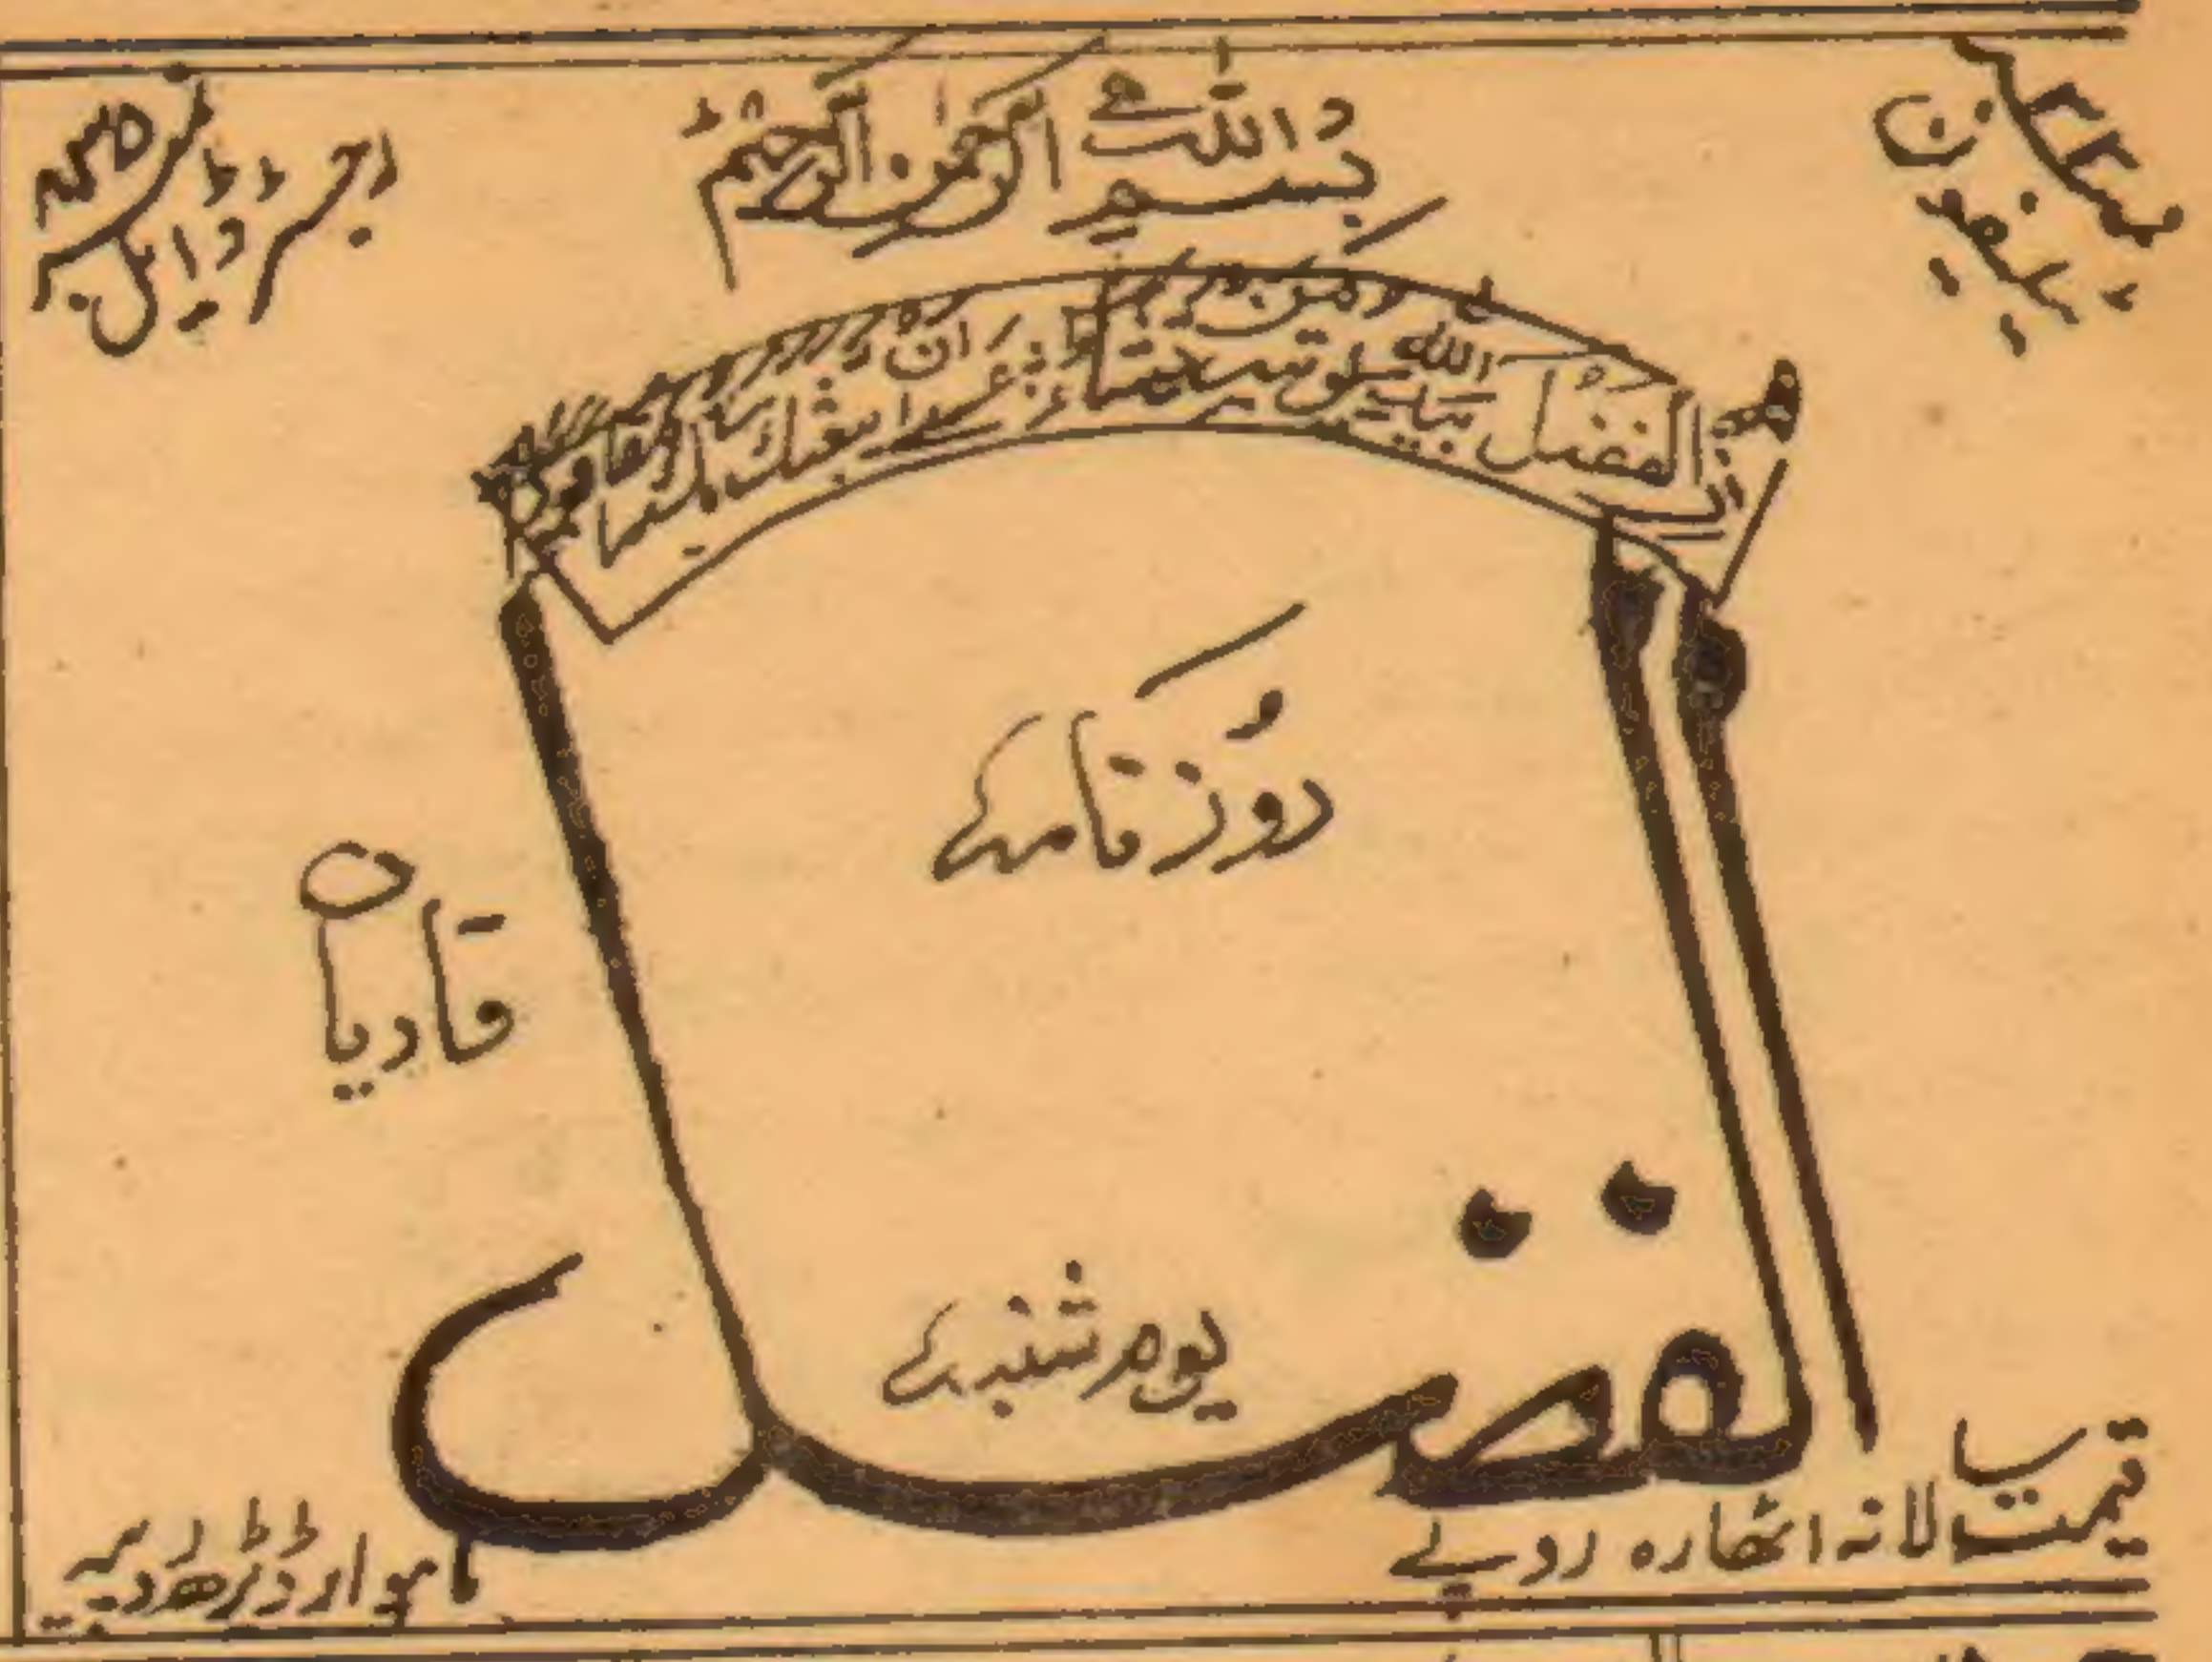 ٹیلیفون نمبر ۳۳
بسم اللہ الرحمن الرحیم
رجسٹرڈ ایل نمبر ۸۳۵
ان الفضل بید اللہ یؤتیہ من یشاء عسیٰ ان یبعثک ربک مقاما محمودا
روزنامہ
قادیان
الفضل
یوم شنبہ
قیمت سالانہ اٹھارہ روپے
ماہوار ڈیڑھ روپیہ